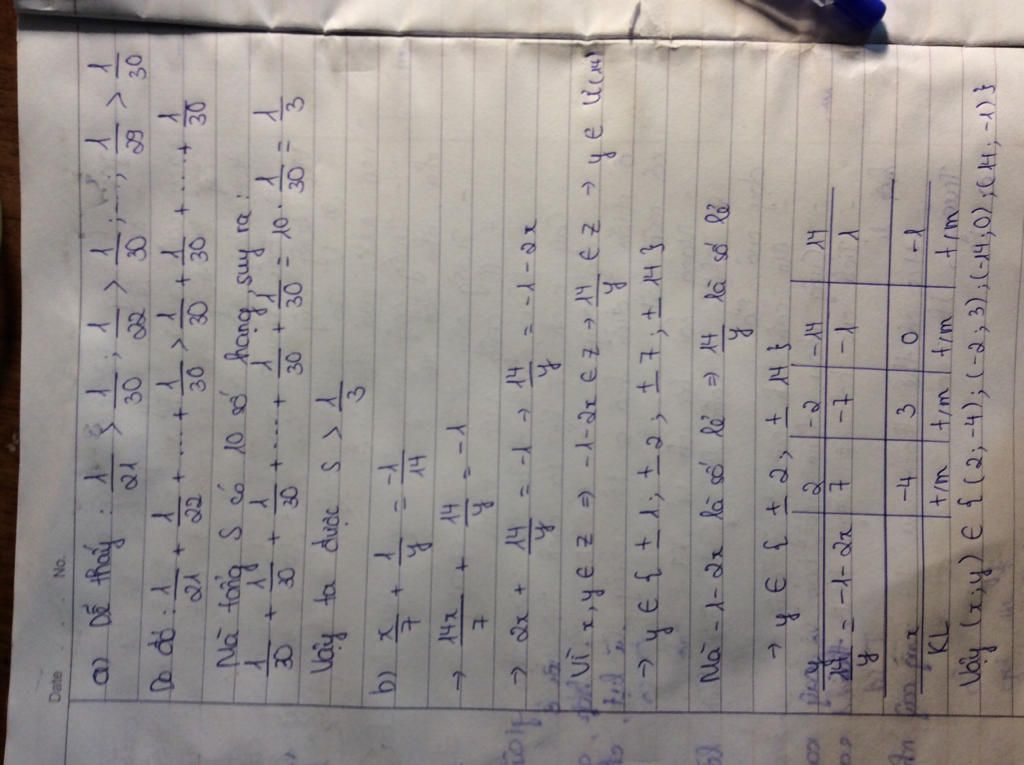 Date No.
a) Dễ thấy : 1/21 > 1/30 ; 1/22 > 1/30 ; ... ; 1/29 > 1/30
Do đó : 1/21 + 1/22 + ..... + 1/30 > 1/30 + 1/30 + ..... + 1/30
Mà tổng S có 10 số hạng, suy ra :
1/30 + 1/30 + 1/30 + ..... + 1/30 + 1/30 = 10 . 1/30 = 1/3
Vậy ta được S > 1/3
b) x/7 + 1/y = -1/14
→ 14x/7 + 14/y = -1
→ 2x + 14/y = -1 → 14/y = -1 - 2x
Vì x, y ∈ Z ⇒ -1 - 2x ∈ Z → 14/y ∈ Z → y ∈ Ư(14)
→ y ∈ { ± 1 ; ± 2 ; ± 7 ; ± 14 }
Mà -1 - 2x là số lẻ ⇒ 14/y là số lẻ
→ y ∈ { ± 2 ; ± 14 }
y 2 -2 -14 14
14/y = -1 - 2x 7 -7 -1 1
x -4 3 0 -1
KL t/m t/m t/m t/m
Vậy (x; y) ∈ { (2; -4) ; (-2; 3) ; (-14; 0) ; (14; -1) }